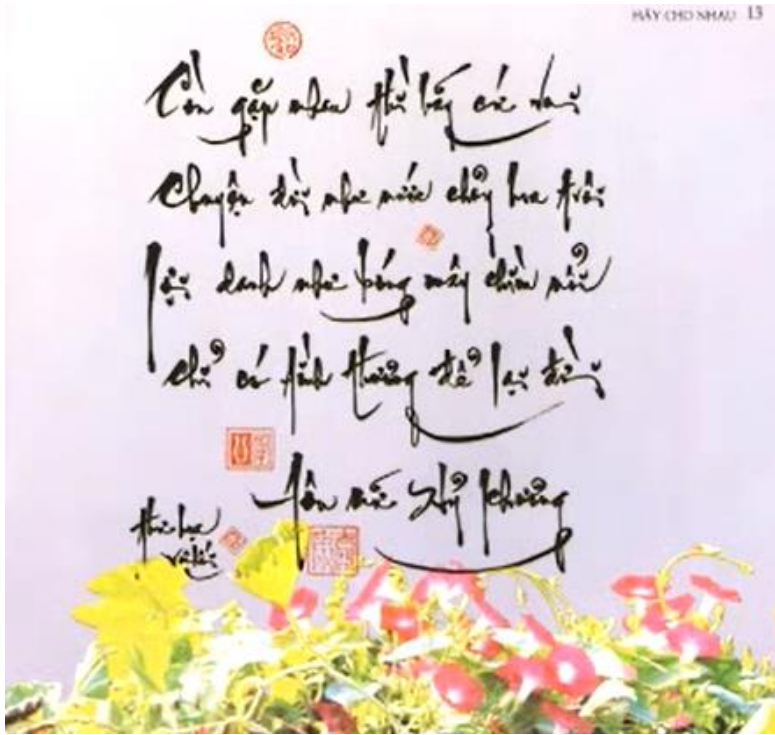 HÃY CHO NHAU 13
Còn gặp nhau thì hãy cứ vui
Chuyện đời như nước chảy hoa trôi
Lợi danh như bóng mây chìm nổi
Chỉ có tình thương để lại đời
Tôn nữ Hỷ Khương
thư họa